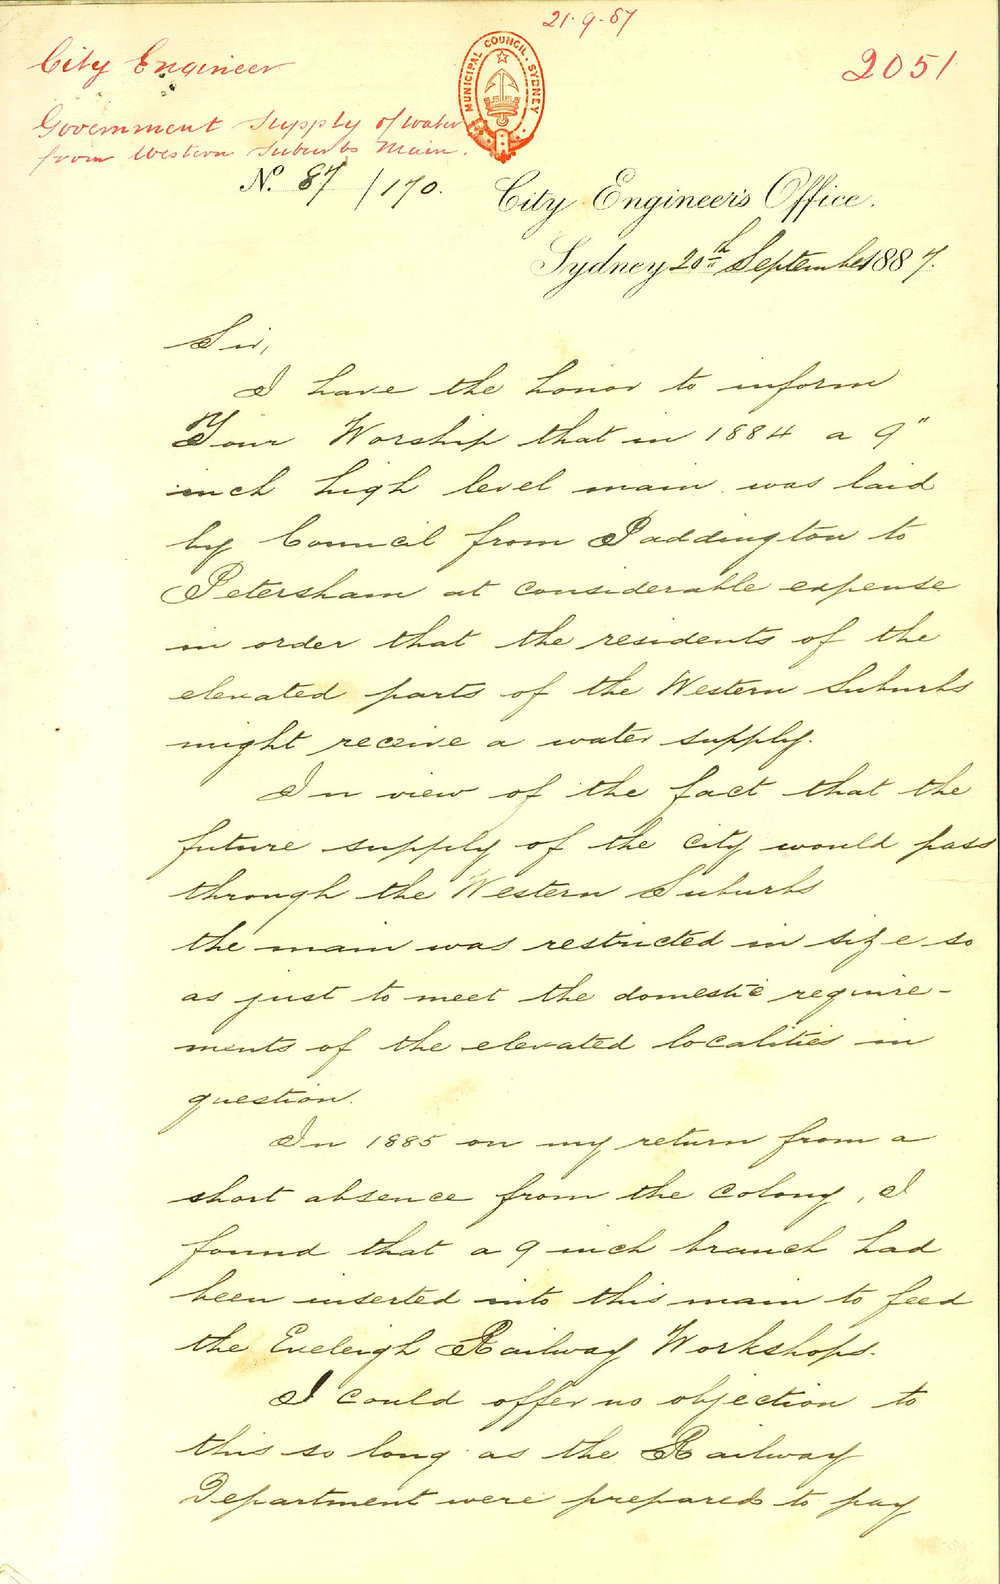 21.9.87
City Engineer
2051
MUNICIPAL COUNCIL. SYDNEY
Government Supply of water
from Western Suburbs Main.
No. 87/170.
City Engineer's Office.
Sydney 20th September 1887.
Sir,
I have the honor to inform
Your Worship that in 1884 a 9"
inch high level main was laid
by Council from Paddington to
Petersham at considerable expense
in order that the residents of the
elevated parts of the Western Suburbs
might receive a water supply.
In view of the fact that the
future supply of the City would pass
through the Western Suburbs
the main was restricted in size so
as just to meet the domestic require-
ments of the elevated localities in
question.
In 1885 on my return from a
short absence from the Colony, I
found that a 9 inch branch had
been inserted into this main to feed
the Eveleigh Railway Workshops.
I could offer no objection to
this so long as the Railway
Department were prepared to pay